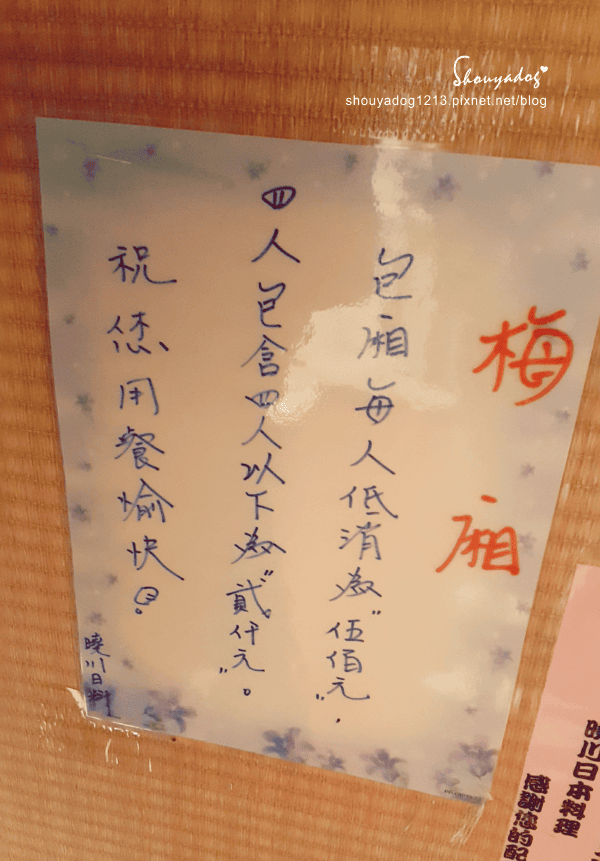 Shouyadog
shouyadog1213.pixnet.net/blog
梅廂
包廂每人低消為"伍佰元",
四人包含四人以下為"貳仟元"。
祝您用餐愉快
曉川日料
曉川日本料理
感謝您的配